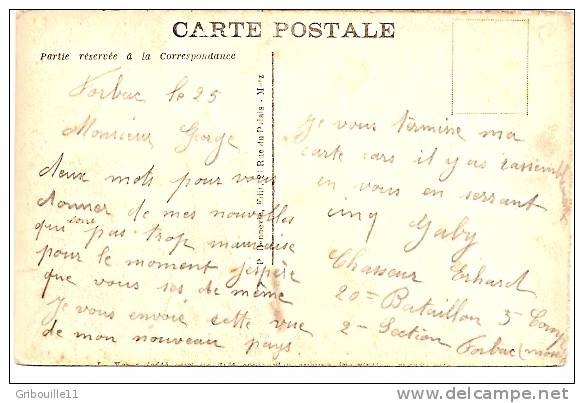 CARTE POSTALE
Partie réservée à la Correspondance
Forbac le 25
Monsieur George
deux mots pour vous
donner de mes nouvelles
qui sont pas trop mauvaise
pour le moment j'espère
que vous ses de même
Je vous envoie cette vue
de mon nouveau pays.
Je vous termine ma
carte cars il y as rassemble
en vous en serrant
cinq Gaby
Chasseur Erhard
20= Bataillon 5= Comp
2= Section
Forbac (mose
Edit. 1 Rue du Palais - Metz
Gribouille11
delcampe.net